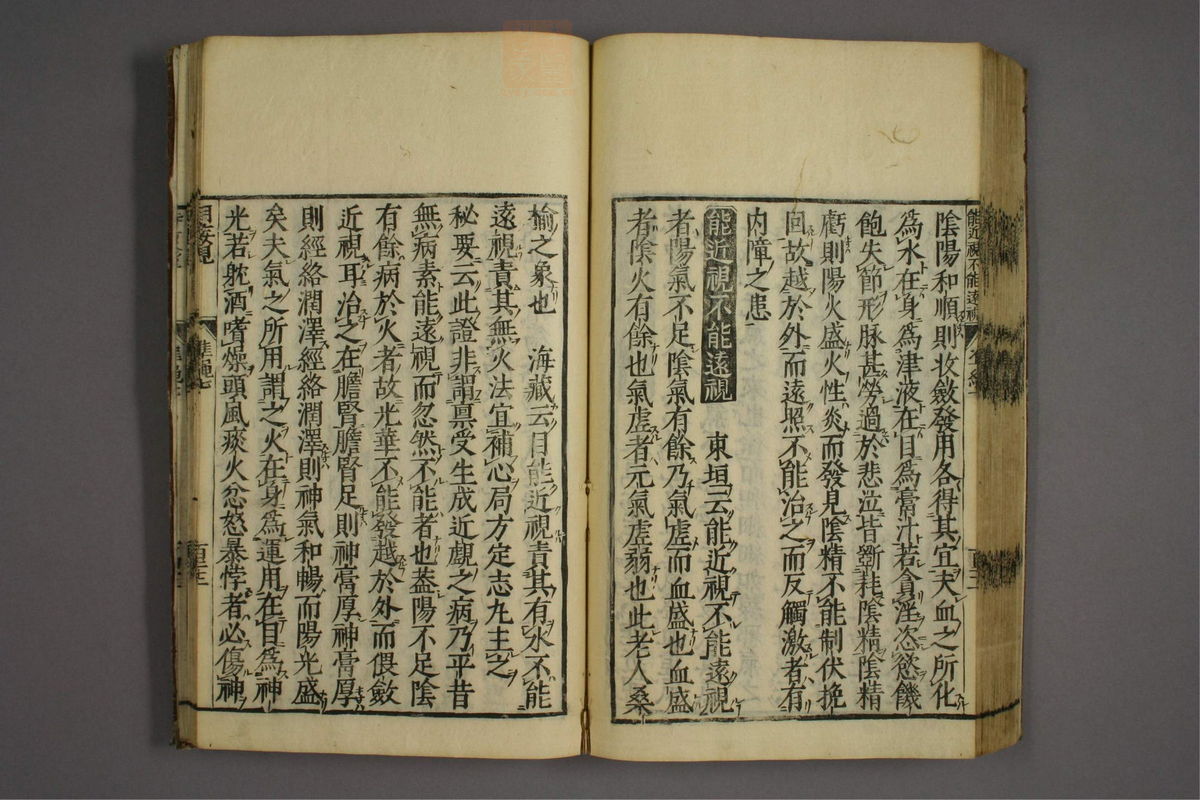 陰陽和順則收斂發用各得其宜夫血之所化
爲水在身爲津液在目爲膏汁若貪淫恣慾饑
飽失節形脉甚勞過於悲泣皆斵耗陰精陰精
虧則陽火盛火性炎而發見陰精不能制伏挽
回故越於外而遠照不能治之而反觸激者有
内障之患
能近視不能遠視 東垣云能近視不能遠視
者陽氣不足陰氣有餘乃氣虚而血盛也血盛
者陰火有餘也氣虚者元氣虚弱也此老人桑
榆之象也 海藏云目能近視責其有水不能
遠視責其無火法宜補心局方定志丸主之
秘要云此證非謂禀受生成近覷之病乃平昔
無病素能遠視而忽然不能者也葢陽不足陰
有餘病於火者故光華不能發越於外而偎斂
近視耳治之在膽腎膽腎足則神膏厚神膏厚
則經絡潤澤經絡潤澤則神氣和暢而陽光盛
矣夫氣之所用謂之火在身爲運用在目爲神
光若躭酒嗜燥頭風痰火忿怒暴悖者必傷神